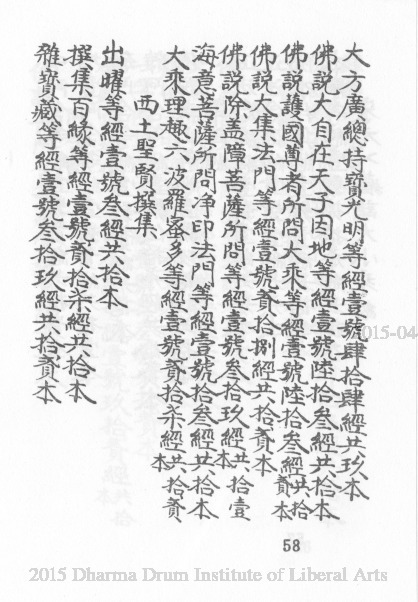 大方廣總持寶光明等經壹號肆拾肆經共玖本
佛説大自在天子因地等經壹號陸拾叁經共拾本
佛説護國尊者所問大乘等經壹號陸拾叁經共拾貳本
佛説大集法門等經壹號貳拾捌經共拾貳本
佛説除盖障菩薩所問等經壹號叁拾玖經共拾壹本
海意菩薩所問净印法門等經壹號拾叁經共拾本
大乘理趣六波羅蜜多等經壹號貳拾柒經共拾貳本
西土聖賢撰集
出曜等經壹號叁經共拾本
撰集百緣等經壹號貳拾柒經共拾本
雜寶藏等經壹號叁拾玖經共拾貳本
58
2015-04
2015 Dharma Drum Institute of Liberal Arts